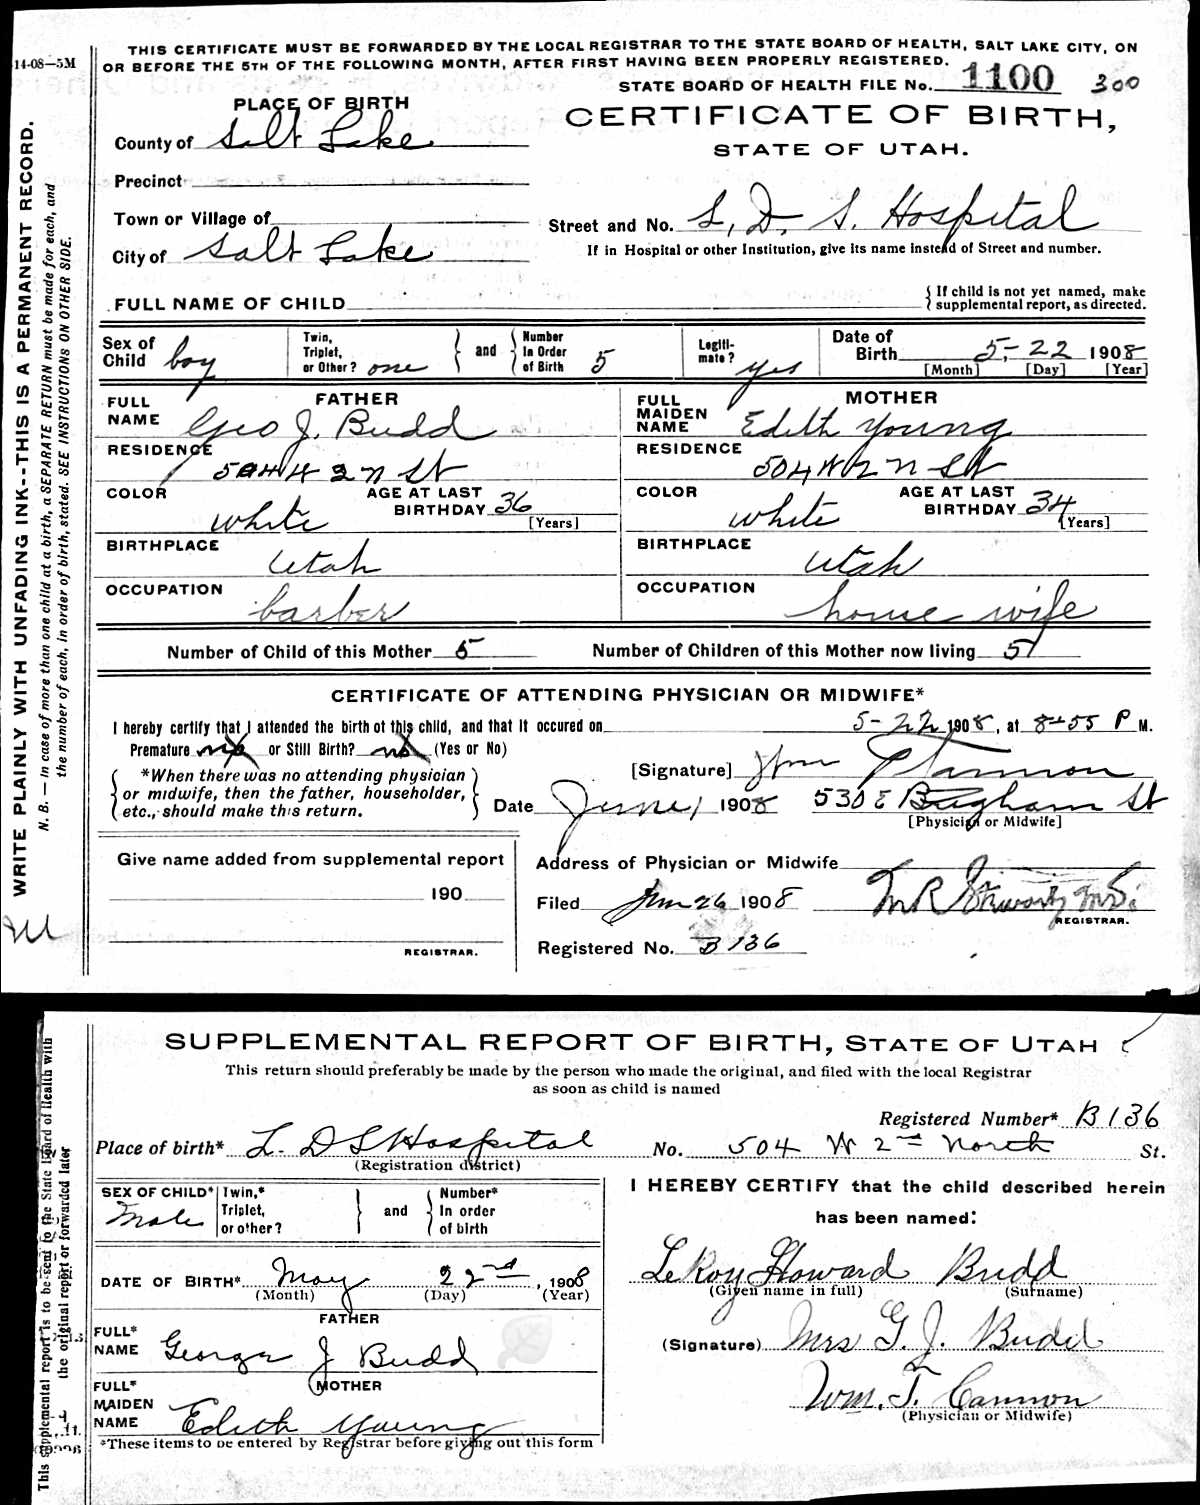 14-08—5M
THIS CERTIFICATE MUST BE FORWARDED BY THE LOCAL REGISTRAR TO THE STATE BOARD OF HEALTH, SALT LAKE CITY, ON
OR BEFORE THE 5TH OF THE FOLLOWING MONTH, AFTER FIRST HAVING BEEN PROPERLY REGISTERED.
STATE BOARD OF HEALTH FILE No. 1100 300
WRITE PLAINLY WITH UNFADING INK--THIS IS A PERMANENT RECORD.
N. B. — In case of more than one child at a birth, a SEPARATE RETURN must be made for each, and
the number of each, in order of birth, stated. SEE INSTRUCTIONS ON OTHER SIDE.
PLACE OF BIRTH
CERTIFICATE OF BIRTH,
STATE OF UTAH.
County of Salt Lake
Precinct
Town or Village of
Street and No. L. D. S. Hospital
City of Salt Lake
If in Hospital or other Institution, give its name instead of Street and number.
FULL NAME OF CHILD
{ If child is not yet named, make
supplemental report, as directed.
Sex of Child boy
Twin, Triplet, or Other? one
and
Number In Order of Birth 5
Legiti-mate? yes
Date of Birth 5-22 1908
[Month] [Day] [Year]
FATHER
FULL NAME Geo J. Budd
RESIDENCE 504 W 2 N St
COLOR white
AGE AT LAST BIRTHDAY 36
[Years]
BIRTHPLACE Utah
OCCUPATION barber
MOTHER
FULL MAIDEN NAME Edith Young
RESIDENCE 504 W 2 N St
COLOR white
AGE AT LAST BIRTHDAY 34
[Years]
BIRTHPLACE Utah
OCCUPATION house wife
Number of Child of this Mother 5
Number of Children of this Mother now living 5
CERTIFICATE OF ATTENDING PHYSICIAN OR MIDWIFE*
I hereby certify that I attended the birth of this child, and that it occured on 5-22 1908, at 8-55 P M.
Premature no or Still Birth? no (Yes or No)
*When there was no attending physician
or midwife, then the father, householder,
etc., should make this return.
[Signature] Wm T Cannon
Date June 1 1908 530 E Brigham St
[Physician or Midwife]
Give name added from supplemental report
190
REGISTRAR.
Address of Physician or Midwife
Filed Jun 26 1908
REGISTRAR.
Registered No. B 136
SUPPLEMENTAL REPORT OF BIRTH, STATE OF UTAH
This return should preferably be made by the person who made the original, and filed with the local Registrar
as soon as child is named
This supplemental report is to be sent to the State Board of Health with
the original report or forwarded later
Registered Number* B 136
Place of birth* L. D S Hospital No. 504 W 2nd North St.
(Registration district)
SEX OF CHILD* Male
Twin,* Triplet, or other?
and
Number* In order of birth
DATE OF BIRTH* May 22nd, 1908
(Month) (Day) (Year)
FATHER
FULL* NAME George J Budd
MOTHER
FULL* MAIDEN NAME Edith Young
*These items to be entered by Registrar before giving out this form
I HEREBY CERTIFY that the child described herein
has been named:
LeRoy Howard Budd
(Given name in full) (Surname)
(Signature) Mrs G. J. Budd
Wm. T. Cannon
(Physician or Midwife)